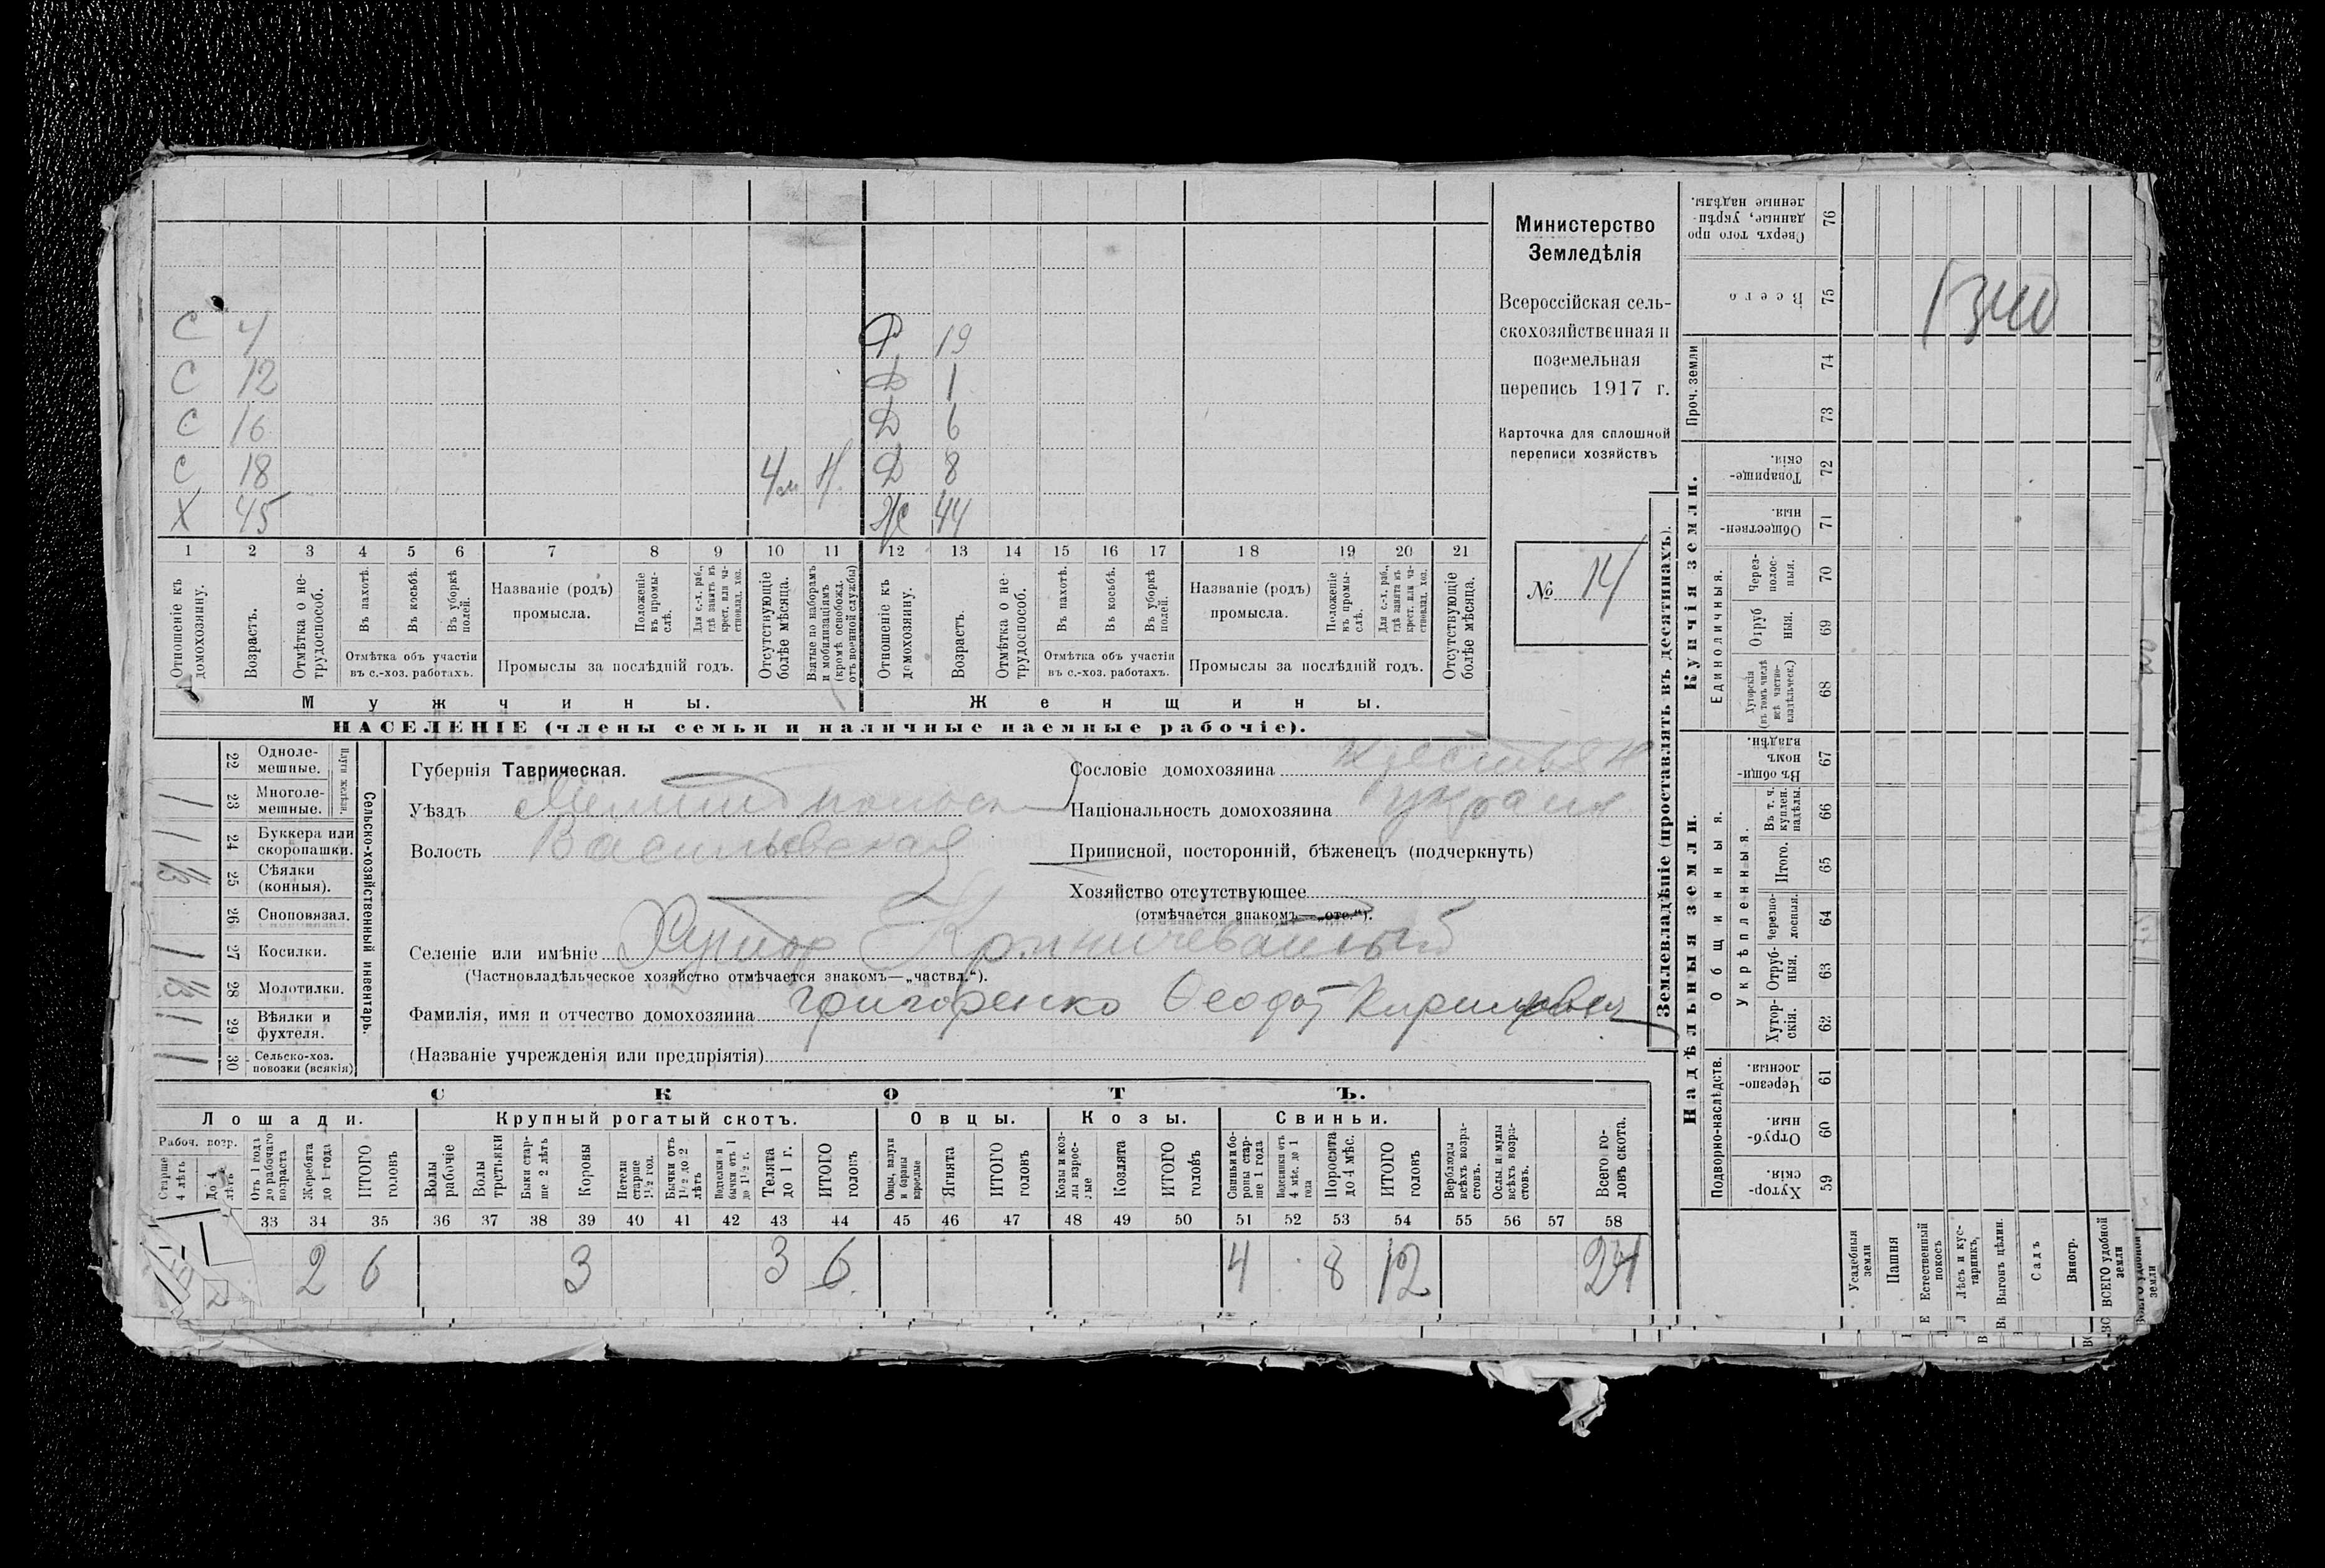 С 4 Ф 19
С 12 Д 1
С 16 Д 6
С 18 4 м Н. Д 8
Х 45 Ж 44
1 2 3 4 5 6 7 8 9 10 11 12 13 14 15 16 17 18 19 20 21
Отношеніе къ домохозяину.
Возрастъ.
Отмѣтка о не-трудоспособ.
Въ пахотѣ.
Въ косьбѣ.
Въ уборкѣ полей.
Отмѣтка объ участіи
въ с.-хоз. работахъ.
Названіе (родъ)
промысла.
Положеніе въ промы-слѣ.
Для с.-х. раб., гдѣ занятъ въ крест. или ча-стновлад. хоз.
Промыслы за послѣдній годъ.
Отсутствующіе болѣе мѣсяца.
Взятые по наборамъ и мобилизаціямъ (кромѣ освобожд. отъ военной службы)
Отношеніе къ домохозяину.
Возрастъ.
Отмѣтка о не-трудоспособ.
Въ пахотѣ.
Въ косьбѣ.
Въ уборкѣ полей.
Отмѣтка объ участіи
въ с.-хоз. работахъ.
Названіе (родъ)
промысла.
Положеніе въ промы-слѣ.
Для с.-х. раб., гдѣ занята въ крест. или ча-стновлад. хоз.
Промыслы за послѣдній годъ.
Отсутствующіе болѣе мѣсяца.
Мужчины. Женщины.
НАСЕЛЕНІЕ (члены семьи и наличные наемные рабочіе).
Министерство
Земледѣлія
Всероссійская сель-
скохозяйственная и
поземельная
перепись 1917 г.
Карточка для сплошной
переписи хозяйствъ
№ 14
22 Одноле-мешные.
23 Многоле-мешные. 1
24 Буккера или скоропашки. 1
25 Сѣялки (конныя).
26 Сноповязал.
27 Косилки. 1
28 Молотилки.
29 Вѣялки и фухтеля. 1
30 Сельско-хоз. повозки (всякія) 1
Сельско-хозяйственный инвентарь.
Губернія Таврическая.
Уѣздъ Мелитопольск
Волость Васильевская
Сословіе домохозяина крестьян
Національность домохозяина украин
Приписной, посторонній, бѣженецъ (подчеркнуть)
Хозяйство отсутствующее
(отмѣчается знакомъ—„отс.“).
Селеніе или имѣніе Хутор
(Частновладѣльческое хозяйство отмѣчается знакомъ—„частвл.“).
Фамилія, имя и отчество домохозяина Григоренко Феодот Кирилович
(Названіе учрежденія или предпріятія)
СКОТЪ.
Лошади. Крупный рогатый скотъ. Овцы. Козы. Свиньи.
Рабоч. возр.
Старше 4 лѣтъ
До 4 лѣтъ
Отъ 1 года до рабочаго возраста
Жеребята до 1-года
ИТОГО головъ
Волы рабочіе
Волы третьяки
Быки стар-ше 2 лѣтъ
Коровы
Нетели старше 1½ год.
Бычки отъ 1½ до 2 лѣтъ
Подтелки и бычки отъ 1 до 1½ г.
Телята до 1 г.
ИТОГО головъ
Овцы, валухи и бараны взрослые
Ягнята
ИТОГО головъ
Козы и коз-лы взрос-лые
Козлята
ИТОГО головъ
Свиньи и бо-ровы стар-ше 1 года
Подсвинки отъ 4 мѣс. до 1 года
Поросята до 4 мѣс.
ИТОГО головъ
Верблюды всѣхъ возра-стовъ.
Ослы и мулы всѣхъ возра-стовъ.
Всего го-ловъ скота.
33 34 35 36 37 38 39 40 41 42 43 44 45 46 47 48 49 50 51 52 53 54 55 56 57 58
2 2 6 3 3 6 4 8 12 24
Землевладѣніе (проставлять въ десятинахъ).
Сверхъ того про данные, укрѣп-ленные надѣлы. 76
Всего 75 1340
Проч. земли 74
73
Купчія земли.
Товарище-скія. 72
Обществен-ныя. 71
Единоличныя.
Через-полос-ныя. 70
Отруб ныя. 69
Хуторскія (въ томъ числѣ всѣ частно-владѣльческ.) 68
Надѣльныя земли.
Общинныя.
Въ общин-номъ владѣн. 67
Укрѣпленныя.
Въ т. ч. куплен. надѣлы. 66
Итого. 65
Черезпо-лосныя. 64
Отруб-ныя. 63
Хутор-скія. 62
Подворно-наслѣдств.
Черезпо-лосныя. 61
Отруб-ныя. 60
Хутор-скія. 59
Усадебныя земли
Пашня
Естественный покосъ
Лѣсъ и кус-тарникъ,
Выгонъ цѣлин.
Садъ
Виногр.
ВСЕГО удобной земли